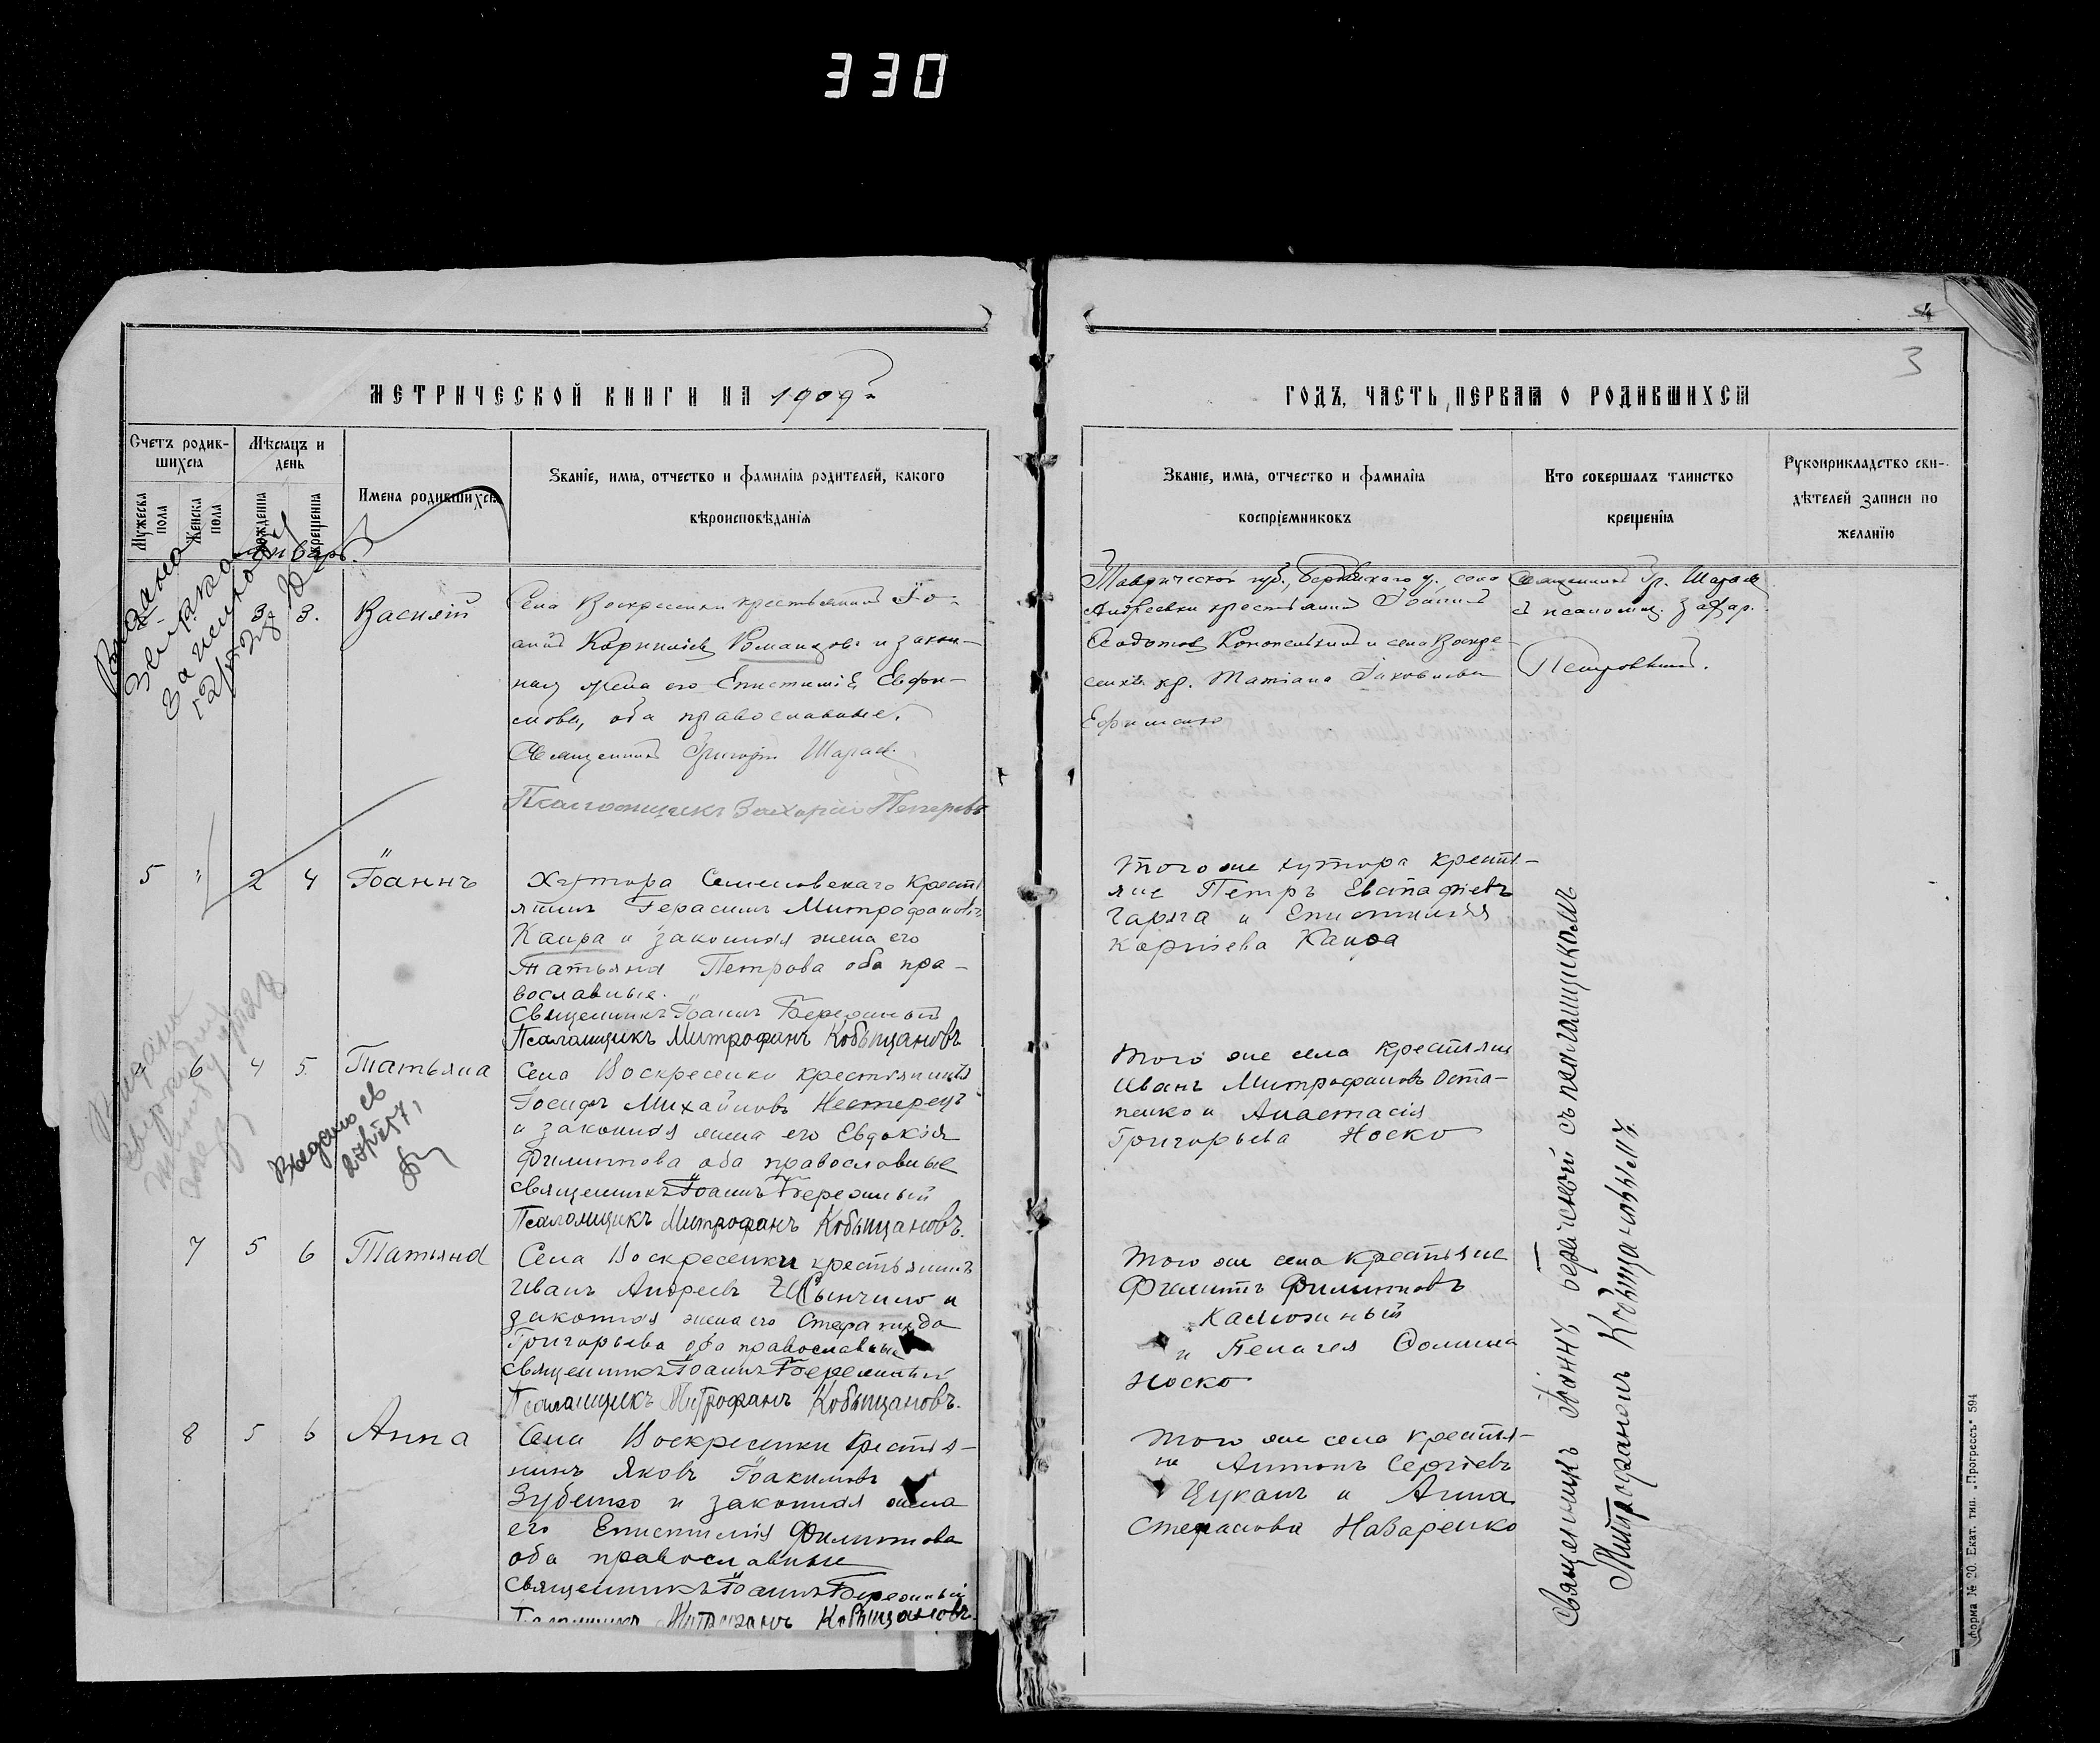 330
4
3
МЕТРИЧЕСКОЙ КНИГИ НА 1909
ГОДЪ, ЧАСТЬ ПЕРВАЯ О РОДИВШИХСЯ
Счетъ родив-
шихся
Мужеска пола
Женска пола
Мѣсяцъ и
день
рожденія
крещенія
Имена родившихся
Званіе, имя, отчество и фамилія родителей, какого
вѣроисповѣданія
Званіе, имя, отчество и фамилія
воспріемниковъ
Кто совершалъ таинство
крещенія
Рукоприкладство сви-
дѣтелей записи по
желанію
Январь.
3 3. Василій
Села Воскресенки крестьянинъ Іо-
аннъ Корниліевъ Романцовъ и закон-
ная жена его Епистимія Евфи-
мова, оба православные.
Священникъ Григорій
Псаломщикъ Захарій Петровъ
Таврической губ., Бердянскаго у., села
Андреевки крестьянинъ Іоаннъ
и села Воскре-
сенки кр. Татіана Іаковлева
Ефименко
Священникъ Гр.
съ псаломщ. Захар.
5 " 2 4 Іоаннъ
Хутора Семеновскаго крестья
янинъ Герасимъ Митрофановъ
Каира и законная жена его
Татьяна Петрова оба пра-
вославные.
Священникъ Іоаннъ Бережный
Псаломщикъ Митрофанъ Кобыщановъ
Того же хутора крестья-
яне Петръ Евстафіевъ
Гарга и Епистимія
Корніева Каира
6 4 5 Татьяна
Села Воскресенки крестьянинъ
Іосифъ Михайловъ Нестерецъ
и законная жена его Евдокія
Филиппова оба православные
Священникъ Іоаннъ Бережный
Псаломщикъ Митрофанъ Кобыщановъ.
Того же села крестьяне
Иванъ Митрофановъ Оста-
пенко и Анастасія
Григорьева Носко
Выдано св
7 5 6 Татьяна
Села Воскресенки крестьянинъ
Иванъ Андреевъ
законная жена его Стефанида
Григорьева оба православные
Священникъ Іоаннъ Бережный
Псаломщикъ Митрофанъ Кобыщановъ.
Того же села крестьяне
Филиппъ Филипповъ
Калюжный
и Пелагея Фомина
Носко
8 5 6 Анна
Села Воскресенки крестья-
нинъ Яковъ Іоакимовъ
Зубенко и законная жена
его Епистимія Филиппова
оба православные
Священникъ Іоаннъ Бережный
Псаломщикъ Митрофанъ Кобыщановъ
Того же села крестья-
не Антонъ Сергіевъ
Цуканъ и Анна
Стефанова Назаренко
Священникъ Іоаннъ Бережный съ псаломщикомъ
Митрофаномъ Кобыщановымъ.
Форма № 20. Екат. тип. „Прогрессъ" 594